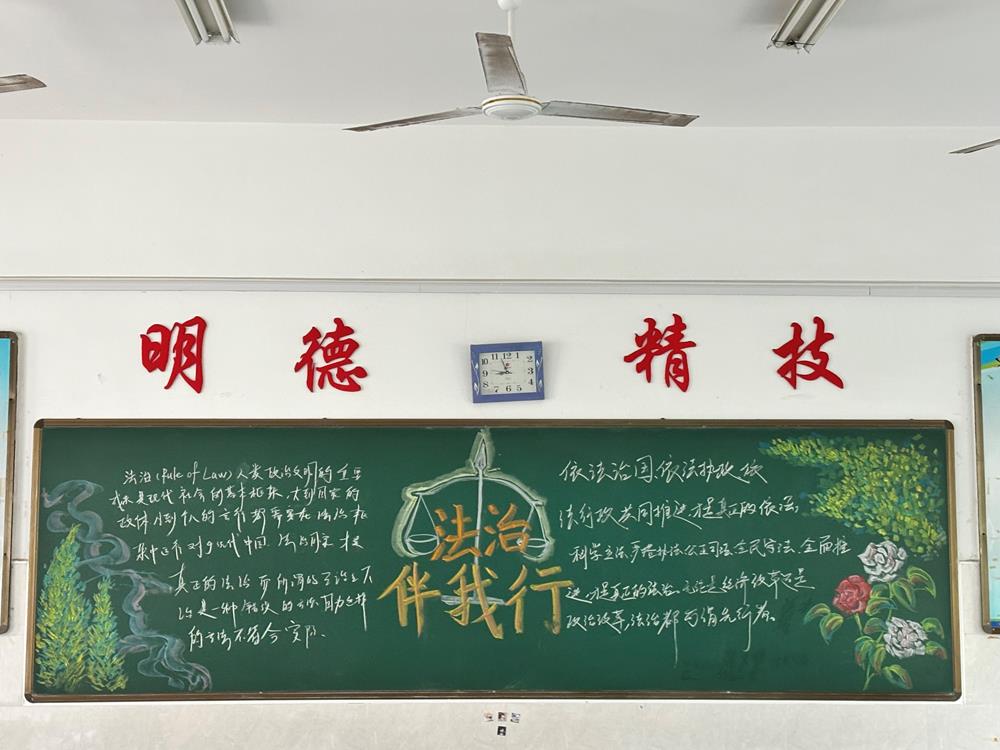 明德 精技
12
11 1
10 2
9 3
8 4
7 6 5
法治(Rule of Law)人类政治文明的重要
成果是现代社会的基本框架,大到国家的
政体小到个人的言行都需要在法治框
架中 对 现代中国 法治国家才是
真正的法治
治是一种 的
的 不符合实际.
法治
伴我行
依法治国、依法执政 依
法行政共同推进才是真正的依法,
科学立法、严格执法公正司法全民守法、全面推
进,才是真正的法治。无论是经济改革还是
政治改革,法治都 先行者.